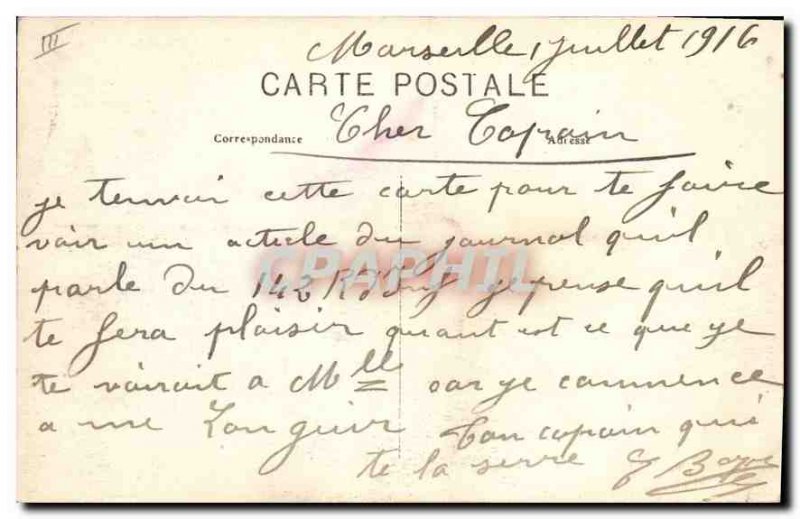 III
Marseille, juillet 1916
CARTE POSTALE
Correspondance
Adresse
Cher Copain
je tenvoi cette carte pour te faire
voir un acticle du journal qu'il
parle du 142 R je pense qu'il
te fera plaisir quant est ce que je
te voirait a Mlle car je commence
a me Languir Ton copain qui
te la serre
CPAPHIL